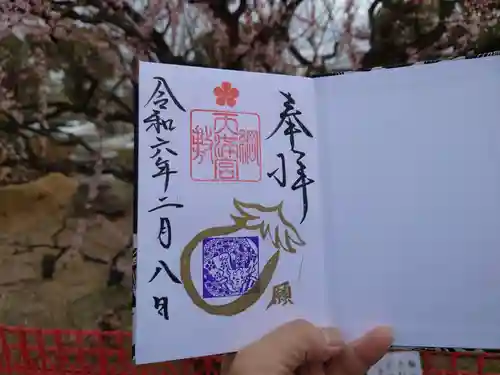 奉拝
綱敷天満宮
願
令和六年二月八日